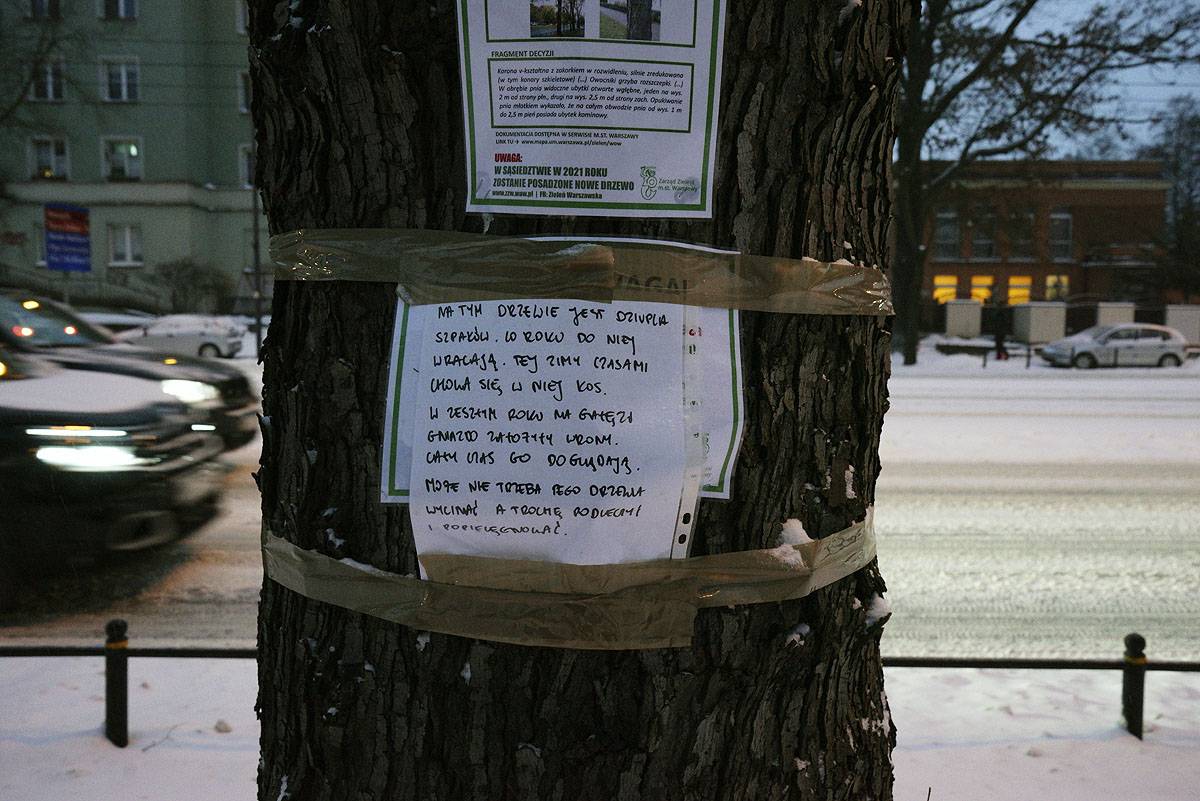 FRAGMENT DECYZJI
Korona v-kształtna z zakorkiem w rozwidleniu, silnie zredukowana
(w tym konary szkieletowe) (...) Owocniki grzyba rozszczepki. (...)
W obrębie pnia widoczne ubytki otwarte wgłębne, jeden na wys.
2 m od strony płn., drugi na wys. 2,5 m od strony zach. Opukiwanie
pnia młotkiem wykazało, że na całym obwodzie pnia od wys. 1 m
do 2,5 m pień posiada ubytek kominowy.
DOKUMENTACJA DOSTĘPNA W SERWISIE M.ST. WARSZAWY
LINK TU → www.mapa.um.warszawa.pl/zielen/wow
UWAGA:
W SĄSIEDZTWIE W 2021 ROKU
ZOSTANIE POSADZONE NOWE DRZEWO
www.zzw.waw.pl | FB: Zieleń Warszawska
Zarząd Zieleni
m.st. Warszawy
WAGA!
NA TYM DRZEWIE JEST DZIUPLA
SZPAKÓW. CO ROKU DO NIEJ
WRACAJĄ. TEJ ZIMY CZASAMI
CHOWA SIĘ W NIEJ KOS.
W ZESZŁYM ROKU NA GAŁĘZI
GNIAZDO ZAŁOŻYŁY WRONY.
CAŁY CZAS GO DOGLĄDAJĄ.
MOŻE NIE TRZEBA TEGO DRZEWA
WYCINAĆ A TROCHĘ PODLECZYĆ
I POPIELĘGNOWAĆ.